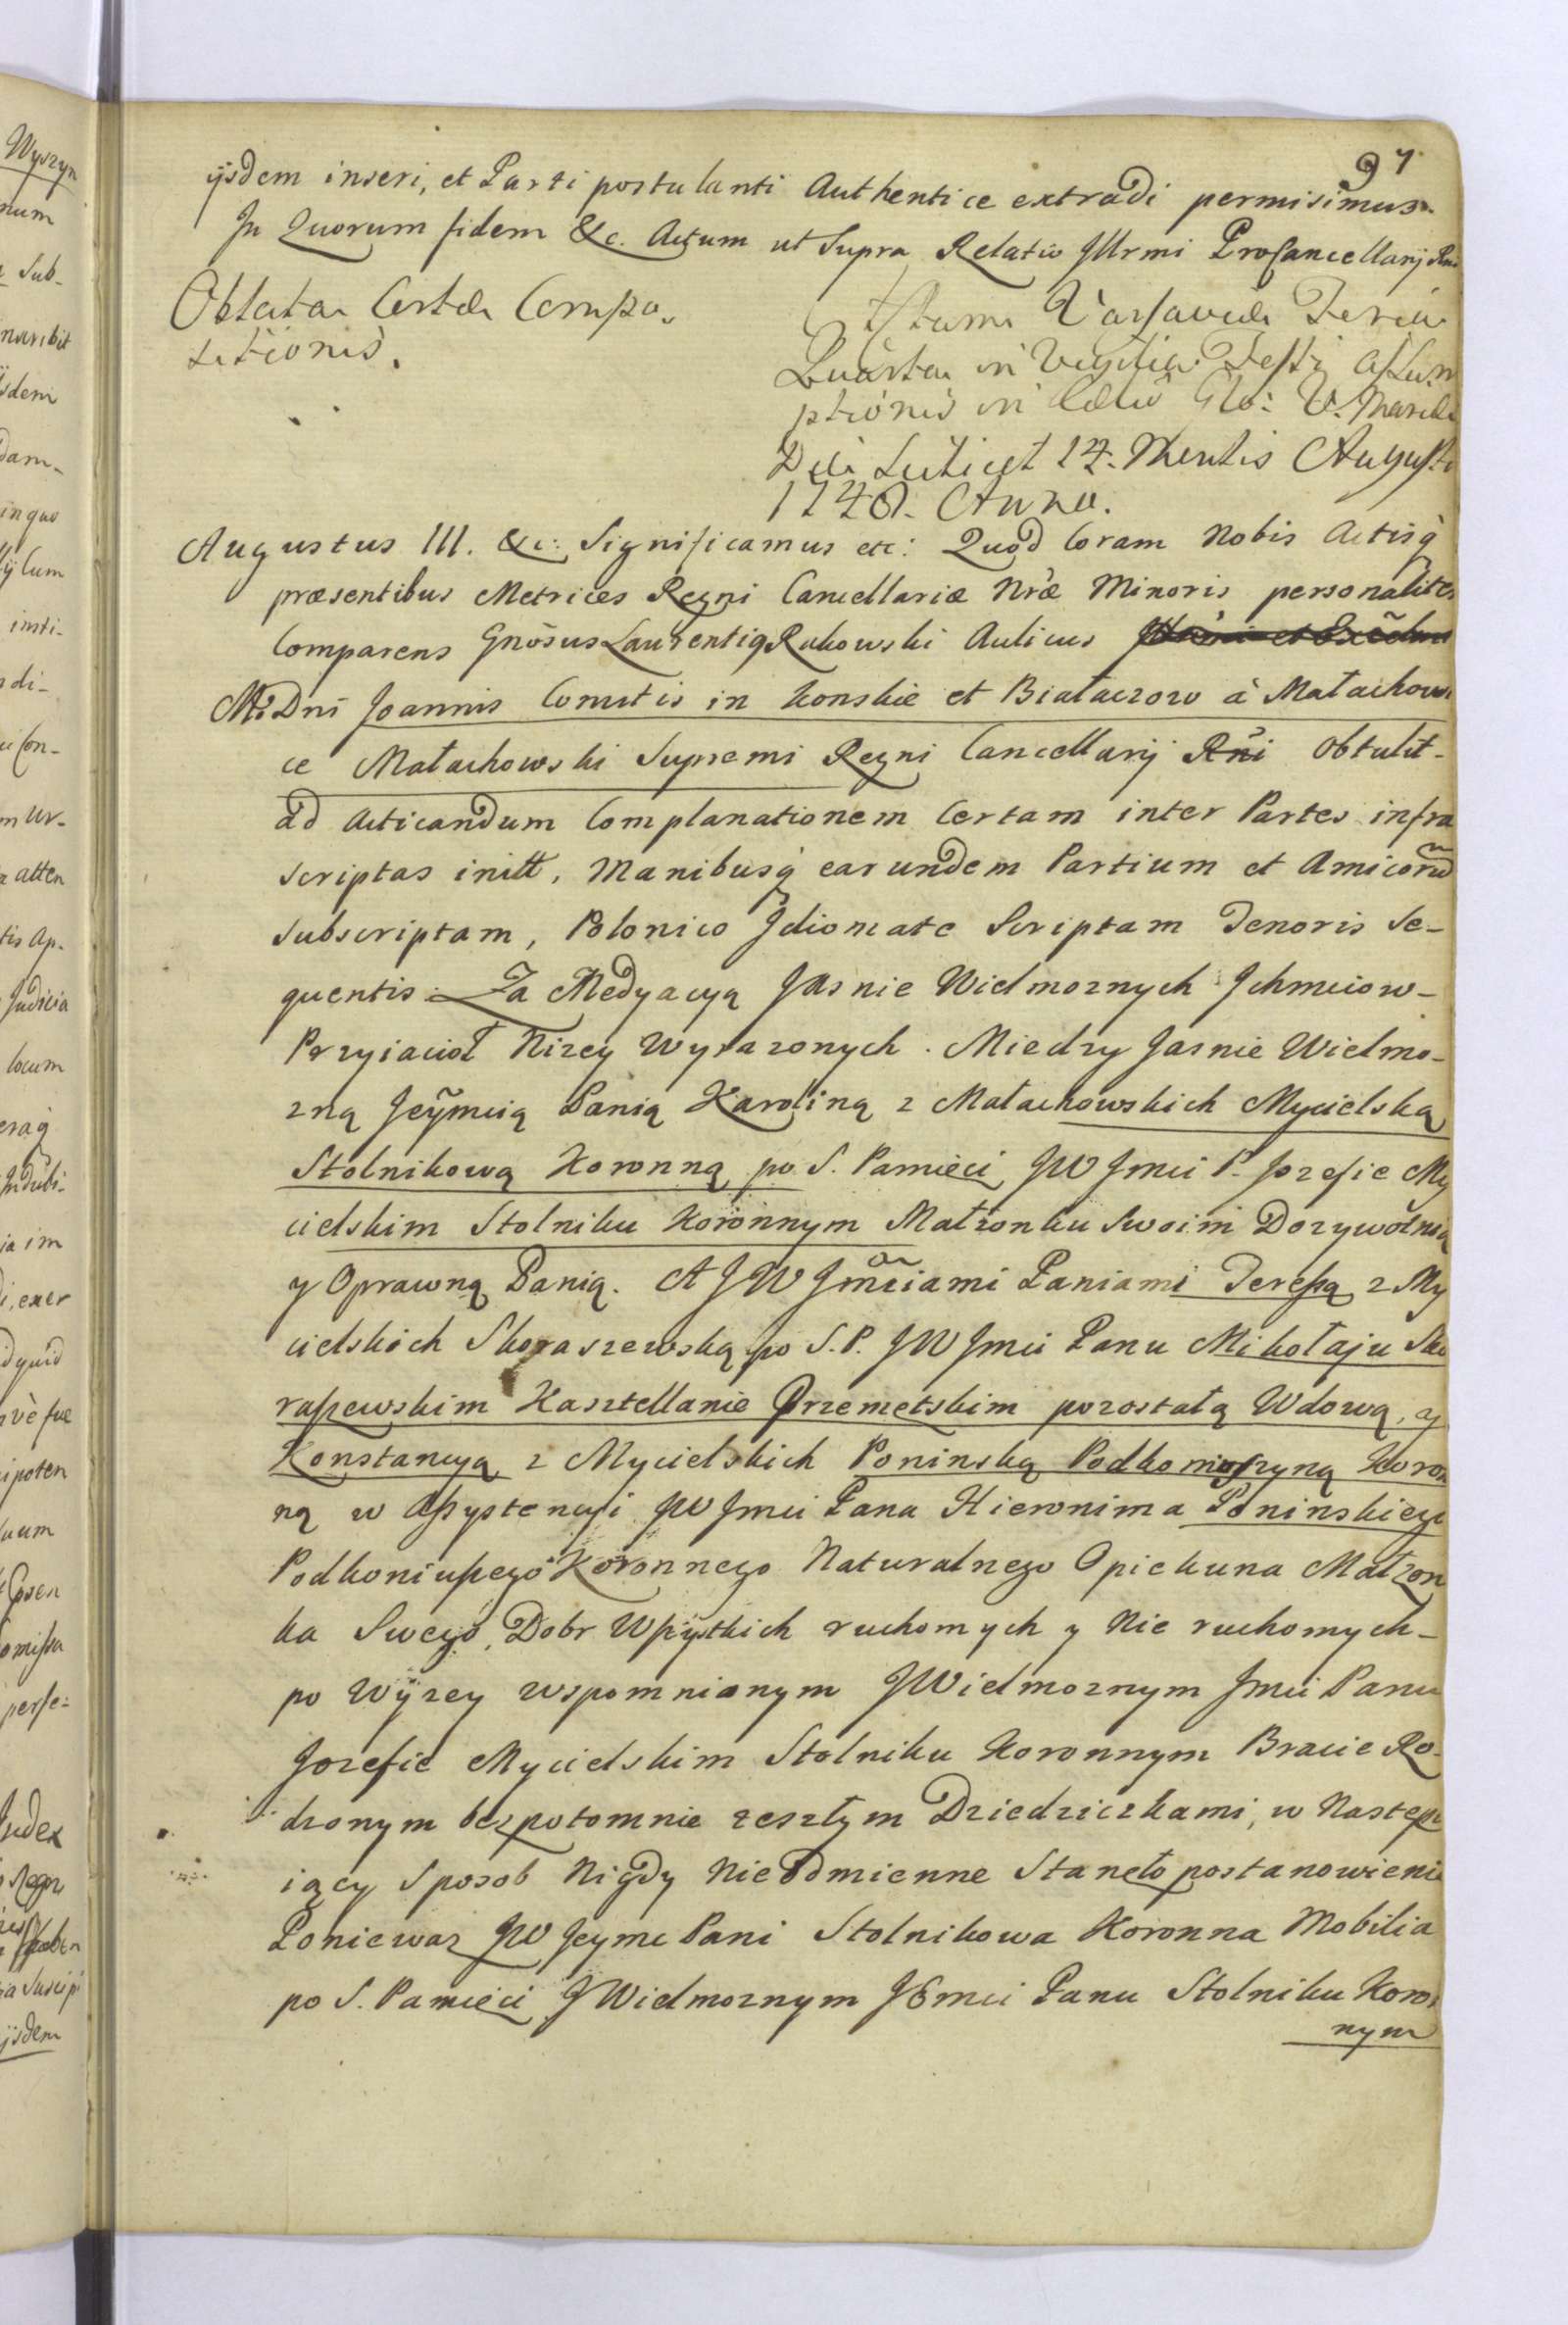 97
ijsdem inseri, et Parti postulanti Authentice extradi permisimus.
In Quorum fidem &c. Actum ut Supra Relatio Jllrmi ProCancellarij Rni
Oblata Certæ Compo-
sitionis.
Actum Varsaviæ Feria
Quarta in Vigilia Festi Assum
ptionis in Cælum Glo: V. Mariæ
Die Scilicet 14. Mensis Augusti
1748. Anno.
Augustus III. &c: Significamus etc: Quod Coram Nobis Actisq̀
præsentibus Metrices Regni Cancellariæ Nræ Minoris personaliter
Comparens Gnōsus Laurentiq Rakowski Aulicus
Mci Dni Joannis Comitis in Konskie et Białaczow à Małachowi
ce Małachowski Supremi Regni Cancellarij Rni Obtulit-
ad Acticandum Complanationem Certam inter Partes infra
scriptas initt, Manibusq̀ earundem Partium et Amicorũ
subscriptam, Polonico Jdiomate Scriptam Tenoris Se-
quentis. Za Medyacyą Jasnie Wielmoznych Jchmciow-
Przyiacioł Nizey Wyrazonych. Miedzy Jasnie Wielmo-
zną Jeỹmcią Panią Karoliną z Małachowskich Mycielską
Stolnikową Koronną po S. Pamięci JW Jmci P. Jozefie My
cielskim Stolniku Koronnym Małzonku Swoim Dozywotnią
y Oprawną Panią. A JW Jm̃ciami Paniami Teressą z My
cielskich Skoraszewską po S.P. JW Jmci Panu Mikołaju Sko
raszewskim Kasztellanie Przemetskim pozostałą Wdową, a
Konstancyą z Mycielskich Poninską Podkoniuszyną Koron
ną w Assystencyi JW Jmci Pana Hieronima Poninskiego
Podkoniuszego Koronnego Naturalnego Opiekuna Małzon
ka Swego, Dobr Wszystkich ruchomych y Nie ruchomych-
po Wyzey wspomnionym JWielmoznym Jmci Panu
Jozefie Mycielskim Stolniku Koronnym Bracie Ro-
dzonym bezpotomnie zeszłym Dziedziczkami, w Nastepu
iący Sposob Nigdy Nieodmienne Staneło postanowienie
Poniewaz JW Jeymc Pani Stolnikowa Koronna Mobilia
po S. Pamięci JWielmoznym JEmci Panu Stolniku Koron
nym